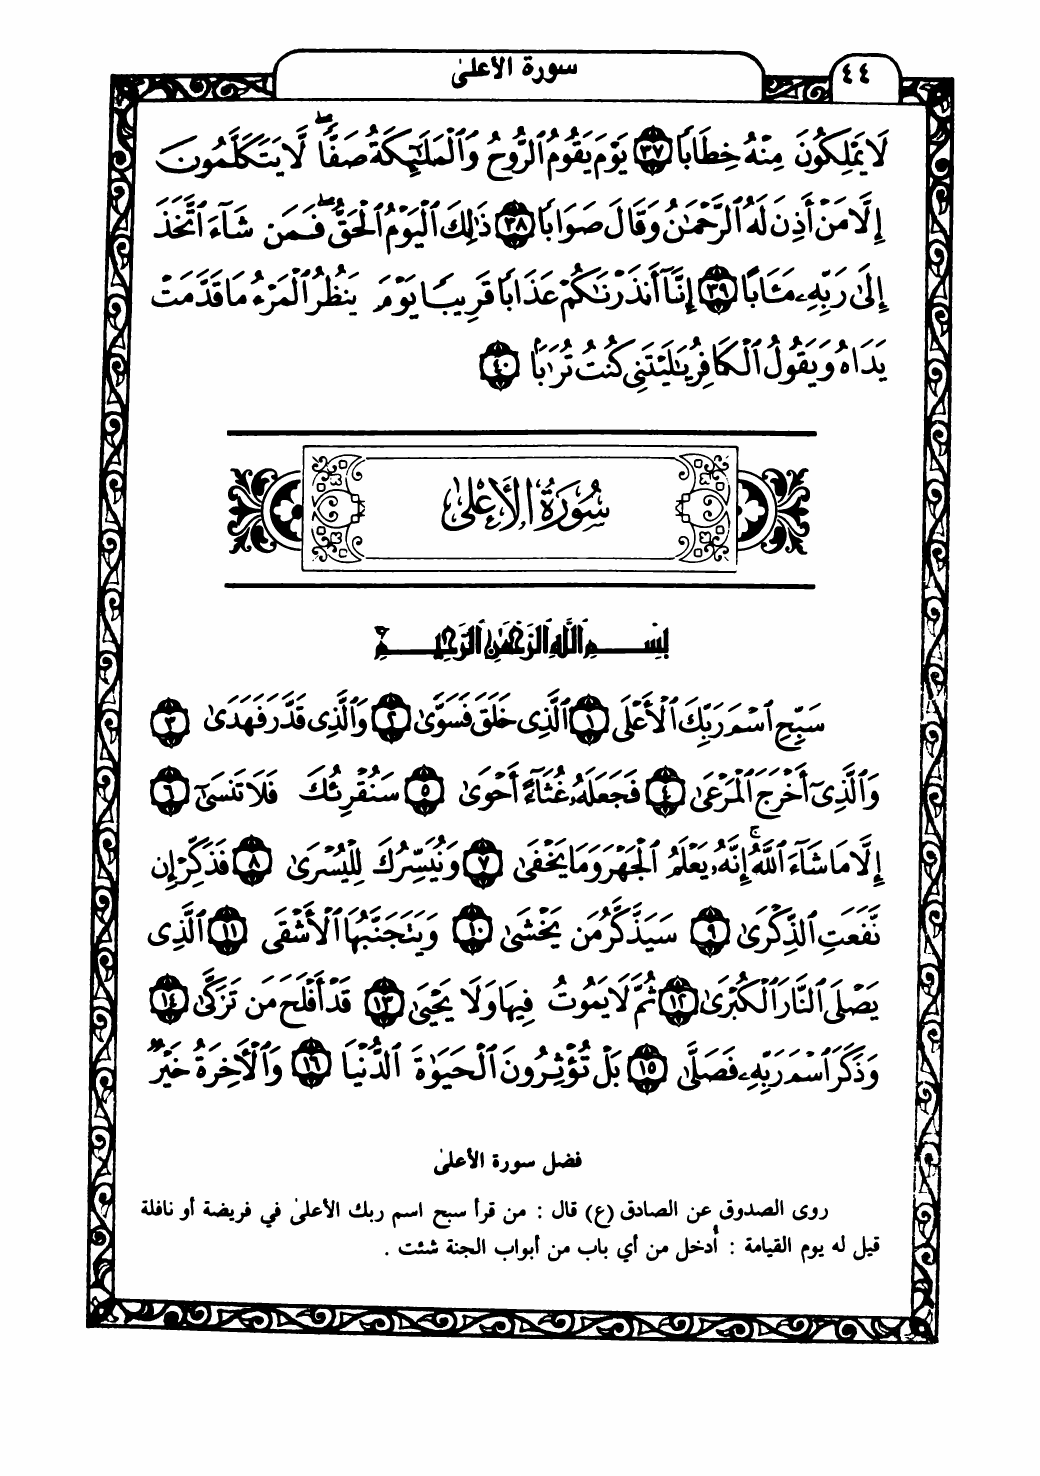 سورة الأعلىٰ
٤٤
لَا يَمْلِكُونَ مِنْهُ خِطَابًا ٣٧ يَوْمَ يَقُومُ ٱلرُّوحُ وَٱلْمَلَٰٓئِكَةُ صَفًّاۖ لَّا يَتَكَلَّمُونَ
إِلَّا مَنْ أَذِنَ لَهُ ٱلرَّحْمَٰنُ وَقَالَ صَوَابًا ٣٨ ذَٰلِكَ ٱلْيَوْمُ ٱلْحَقُّۖ فَمَن شَآءَ ٱتَّخَذَ
إِلَىٰ رَبِّهِۦ مَـَٔابًا ٣٩ إِنَّآ أَنذَرْنَٰكُمْ عَذَابًا قَرِيبًا يَوْمَ يَنظُرُ ٱلْمَرْءُ مَا قَدَّمَتْ
يَدَاهُ وَيَقُولُ ٱلْكَافِرُ يَٰلَيْتَنِى كُنتُ تُرَٰبًۢا ٤٠
سُورَةُ الأَعْلىٰ
بِسْمِ ٱللَّهِ ٱلرَّحْمَٰنِ ٱلرَّحِيمِ
سَبِّحِ ٱسْمَ رَبِّكَ ٱلْأَعْلَى ١ ٱلَّذِى خَلَقَ فَسَوَّىٰ ٢ وَٱلَّذِى قَدَّرَ فَهَدَىٰ ٣
وَٱلَّذِىٓ أَخْرَجَ ٱلْمَرْعَىٰ ٤ فَجَعَلَهُۥ غُثَآءً أَحْوَىٰ ٥ سَنُقْرِئُكَ فَلَا تَنسَىٰٓ ٦
إِلَّا مَا شَآءَ ٱللَّهُۚ إِنَّهُۥ يَعْلَمُ ٱلْجَهْرَ وَمَا يَخْفَىٰ ٧ وَنُيَسِّرُكَ لِلْيُسْرَىٰ ٨ فَذَكِّرْ إِن
نَّفَعَتِ ٱلذِّكْرَىٰ ٩ سَيَذَّكَّرُ مَن يَخْشَىٰ ١٠ وَيَتَجَنَّبُهَا ٱلْأَشْقَى ١١ ٱلَّذِى
يَصْلَى ٱلنَّارَ ٱلْكُبْرَىٰ ١٢ ثُمَّ لَا يَمُوتُ فِيهَا وَلَا يَحْيَىٰ ١٣ قَدْ أَفْلَحَ مَن تَزَكَّىٰ ١٤
وَذَكَرَ ٱسْمَ رَبِّهِۦ فَصَلَّىٰ ١٥ بَلْ تُؤْثِرُونَ ٱلْحَيَوٰةَ ٱلدُّنْيَا ١٦ وَٱلْأَخِرَةُ خَيْرٌ
فضل سورة الأعلىٰ
روى الصدوق عن الصادق (ع) قال : من قرأ سبح اسم ربك الأعلىٰ في فريضة أو نافلة
قيل له يوم القيامة : أُدخل من أي باب من أبواب الجنة شئت .